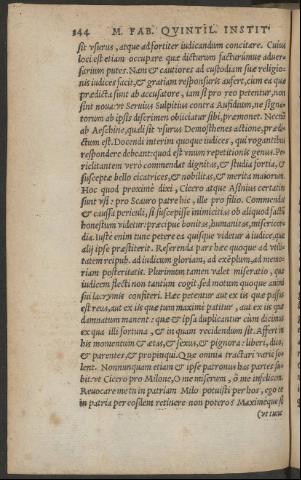 244 M. FAB. QVINTIL. INSTIT
sit vsurus, atque ad fortiter iudicandum concitare. Cuius
loci est etiam occupare quæ dicturum facturumue aduer-
sarium putes. Nam & cautiores ad custodiam suæ religio-
nis iudices facit, & gratiam responsuris aufert, cum ea quæ
prædicta sunt ab accusatore, iam si pro reo petentur, non
sint noua: vt Seruius Sulpitius contra Aufidium, ne signa-
torum ab ipsis discrimen obiiciatur sibi, præmonet. Necnõ
ab Aeschine, quali sit vsurus Demosthenes actione, prædi-
ctum est. Docendi interim quoque iudices, qui rogantibus
respondere debeant: quod est vnum repetitionis genus. Pe-
riclitantem verò commendat dignitas, & studia fortia, &
susceptæ bello cicatrices, & nobilitas, & merita maiorum.
Hoc quod proximè dixi, Cicero atque Asinius certatim
sunt vsi: pro Scauro patre hic, ille pro filio. Commendat
& caussa periculi, si suscepisse inimicitias ob aliquod factũ
honestum videtur: præcipuè bonitas, humanitas, misericor-
dia. iustè enim tunc petere ea quisque videtur à iudice, quæ
alij ipse præstiterit. Referenda pars hæc quoque ad vtili-
tatem reipub. ad iudicum gloriam, ad exẽplum, ad memo-
riam posteritatis. Plurimùm tamen valet miseratio, quæ
iudicem flecti non tantùm cogit, sed motum quoque animi
sui lacrymis confiteri. Hæc petentur aut ex iis quæ passus
est reus, aut ex iis quæ tum maximè patitur, aut ex iis quæ
damnatum manent: quæ & ipsa duplicantur cum dicimus
ex qua illi fortuna, & in quam recidendum sit. Affert in
his momentum & ætas, & sexus, & pignora: liberi, dico,
& parentes, & propinqui. Quæ omnia tractari variè so-
lent. Nonnunquam etiam & ipse patronus has partes su-
bit: vt Cicero pro Milone, O me miserum, ô me infelicem.
Reuocare me tu in patriam Milo potuisti per hos, ego te
in patria per eosdem retinere non potero? Maximeque si